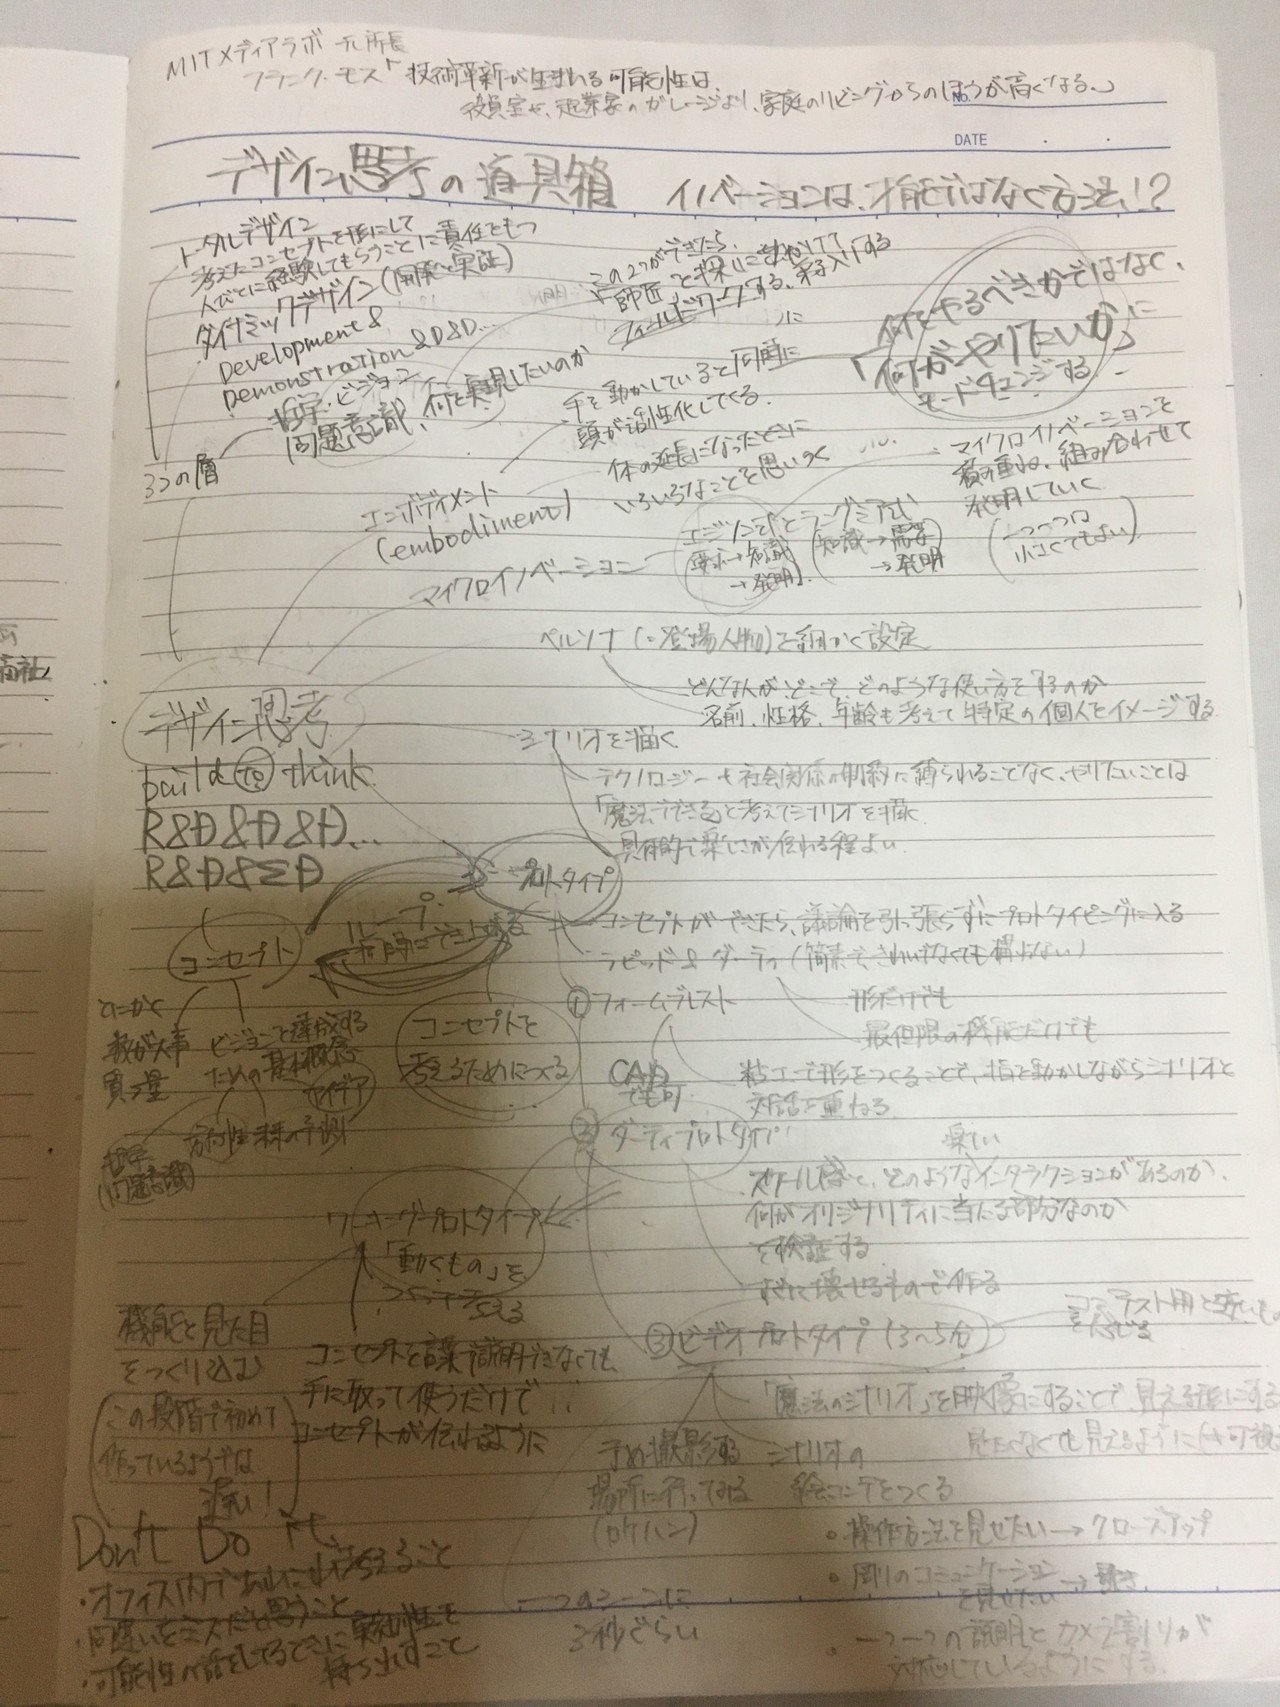 MITメディアラボ 元所長
フランク・モス「技術革新が生まれる可能性は、
役員室や、起業家のガレージより、家庭のリビングからのほうが高くなる。」
NO.
DATE
デザイン思考の道具箱 イノベーションは、才能ではなく方法!?
トータルデザイン
考えたコンセプトを形にして
人びとに経験してもらうことに責任をもつ
ダイナミックデザイン(開発と実証)
Development &
Demonstration & D&D...
哲学・ビジョン
問題意識、何を実現したいのか
3つの層
この2つができたら、
「師匠」を探しに出かけて
フィールドワークする、弟子入りする
何をやるべきかではなく、
「何がやりたいか」に
モードチェンジする
手を動かしていると同時に
頭が活性化してくる。
体の延長になったときに
いろいろなことを思いつく
エンボディメント
(embodiment)
マイクロイノベーションを
積み重ね、組み合わせて
発明していく
(一つ一つは
小さくてもよい)
マイクロイノベーション
エジソン式とラングミア式
要求→知識
→発明
(知識→需要
→発明)
ペルソナ(=登場人物)を細かく設定
どんな人が、どこで、どのような使い方をするのか
名前、性格、年齢も考えて特定の個人をイメージする
デザイン思考
build to think
R&D&D&D...
R&D&ΣD
シナリオを描く
テクノロジー+社会関係の制約に縛られることなく、やりたいことは
「魔法でできる」と考えてシナリオを描く
具体的で楽しさが伝わる程よい
プロトタイプ
ループ
同時にでき上がる
コンセプト
コンセプトができたら、議論を引っ張らずにプロトタイピングに入る
ラピッド&ダーティ(簡素で、きれいでなくても構わない)
とにかく
数が大事
質より量
ビジョンを達成する
ための基本概念
アイデア
方向性 未来の予測
哲学
(問題意識)
コンセプトを
考えるためにつくる
①フォームブレスト
形だけでも
最低限の機能だけでも
CAD
でも可
粘土で形をつくることで、指を動かしながらシナリオと
対話を重ねる
②ダーティプロトタイプ
楽しい
スケール感と、どのようなインタラクションがあるのか、
何がオリジナリティに当たる部分なのか
を検証する
すぐに壊せるもので作る
ワーキングプロトタイプ
「動くもの」を
機能と見た目
をつくり込む
この段階で初めて
作っているようでは
遅い!
コンセプトを言葉で説明できなくても
手に取って使うだけで
コンセプトが伝わるように
③ビデオプロトタイプ(3〜5分)
「魔法のシナリオ」を映像にすることで、見える形にする
予め撮影する
場所に行ってみる
(ロケハン)
シナリオの
絵コンテをつくる
・操作方法を見せたい→クローズアップ
・周りのコミュニケーション
を見せたい→
・一つ一つの説明とカメラ割りが
対応しているようにする
一つのシーンに
3秒ぐらい
Don't Do it
・オフィス内であれこれ考えること
・間違いをミスだと思うこと
・可能性の話をしてるときに実現性を
持ち出すこと